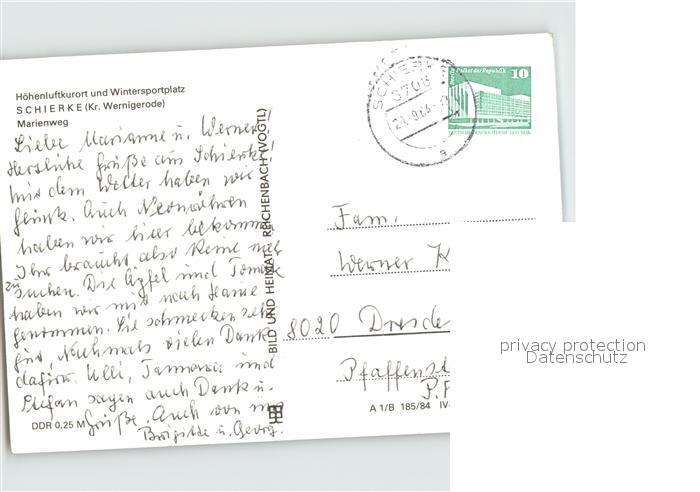 Höhenluftkurort und Wintersportplatz
SCHIERKE (Kr. Wernigerode)
Marienweg
Liebe Marianne u. Werner!
Herzliche Grüße aus Schierke!
Mit dem Wetter haben wir
Glück. Auch
haben wir hier bekommen
Ihr braucht also keine mehr
zu suchen. Die Äpfel und Tomaten
haben wir mit nach Hause
genommen. Sie schmecken sehr
gut. Nochmals vielen Dank
dafür. Ulli, Tamara und
Stefan sagen auch Dank u.
Grüße. Auch von uns
Brigitte u. Georg.
DDR 0,25 M
BILD UND HEIMAT REICHENBACH (VOGTL)
SCHIERKE
3706
a
Palast der Republik
10
Fam.
Werner K
8020 Dresde
Pfaffenst
P.F
A 1/B 185/84 IV
privacy protection
Datenschutz